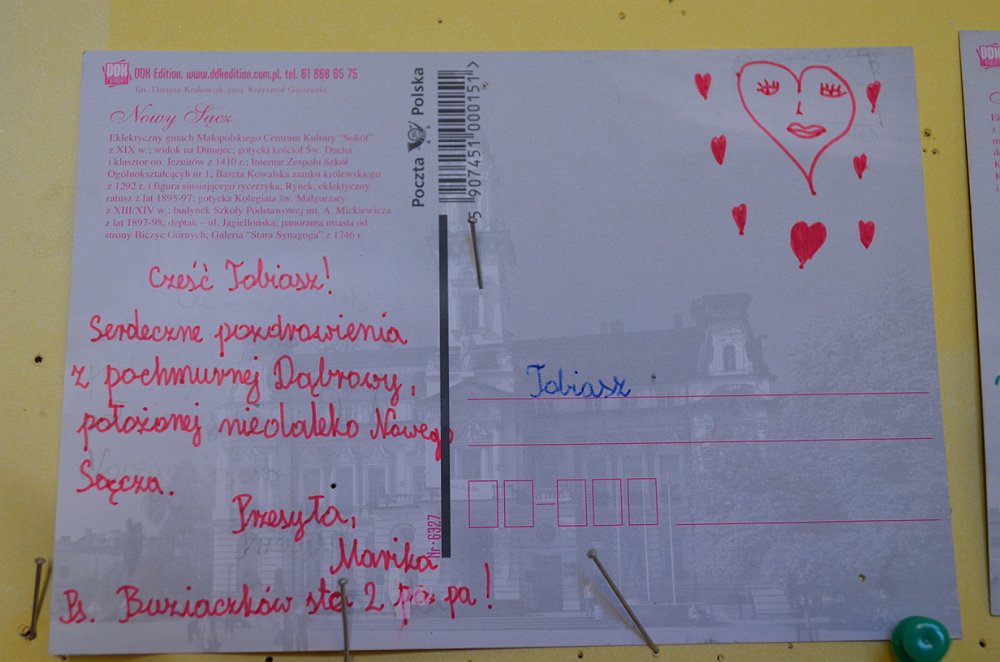 DDK DDK Edition, www.ddkedition.com.pl, tel. 61 868 65 75
fot. Dariusz Krakowiak, proj. Krzysztof Gąszewski
Nowy Sącz
Eklektyczny gmach Małopolskiego Centrum Kultury "Sokół"
z XIX w.; widok na Dunajec; gotycki kościół Św. Ducha
i klasztor oo. Jezuitów z 1410 r.; Internat Zespołu Szkół
Ogólnokształcących nr 1; Baszta Kowalska zamku królewskiego
z 1292 r. i figura siusiającego rycerzyka; Rynek, eklektyczny
ratusz z lat 1895-97; gotycka Kolegiata św. Małgorzaty
z XIII/XIV w.; budynek Szkoły Podstawowej im. A. Mickiewicza
z lat 1897-98; deptak – ul. Jagiellońska; panorama miasta od
strony Biczyc Górnych; Galeria "Stara Synagoga" z 1746 r.
Cześć Tobiasz!
Serdeczne pozdrowienia
z pochmurnej Dąbrowy,
położonej niedaleko Nowego
Sącza.
Przesyła,
Marika
Ps. Buziaczków sto 2 pa pa!
Poczta Polska
5 907451 000151 >
Nr: 6327
Tobiasz